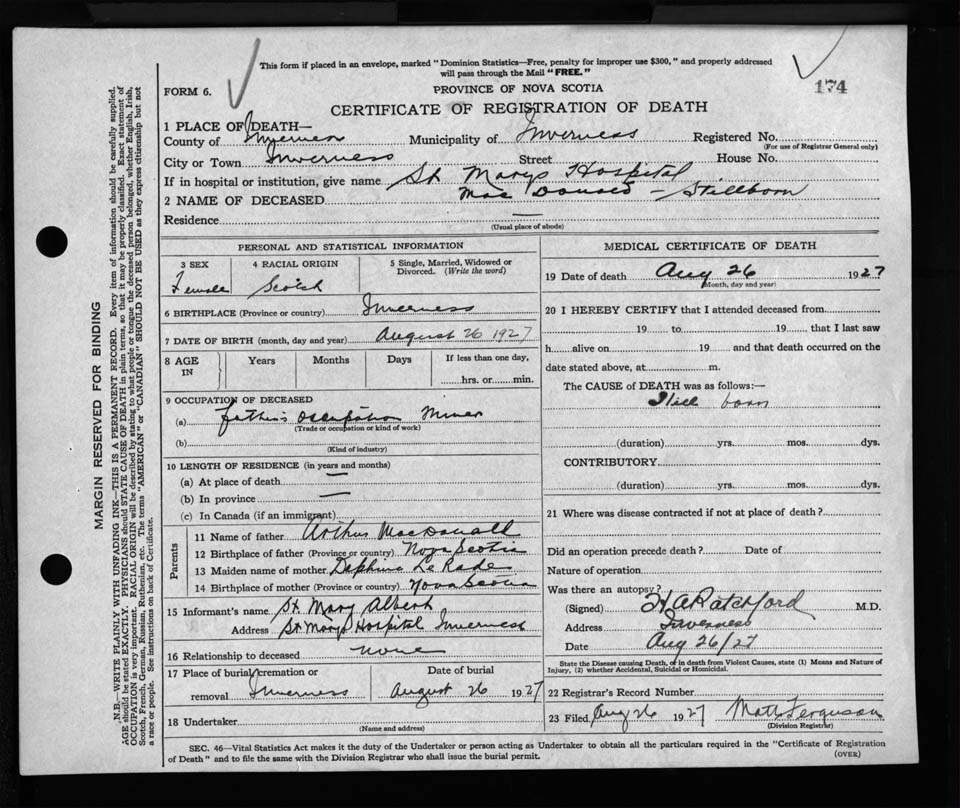 This form if placed in an envelope, marked "Dominion Statistics—Free, penalty for improper use $300," and properly addressed
will pass through the Mail "FREE."
174
FORM 6.
PROVINCE OF NOVA SCOTIA
CERTIFICATE OF REGISTRATION OF DEATH
1 PLACE OF DEATH—
County of Inverness Municipality of Inverness Registered No.
(For use of Registrar General only)
City or Town Inverness Street House No.
If in hospital or institution, give name St Marys Hospital
2 NAME OF DECEASED Mac Donald — Stillborn
Residence —
(Usual place of abode)
PERSONAL AND STATISTICAL INFORMATION
3 SEX 4 RACIAL ORIGIN 5 Single, Married, Widowed or
Divorced. (Write the word)
Female Scotch
6 BIRTHPLACE (Province or country) Inverness
7 DATE OF BIRTH (month, day and year) August 26 1927
8 AGE Years Months Days If less than one day,
IN
hrs. or min.
9 OCCUPATION OF DECEASED
(a) Father's Occupation Miner
(Trade or occupation or kind of work)
(b)
(Kind of industry)
10 LENGTH OF RESIDENCE (in years and months)
(a) At place of death —
(b) In province —
(c) In Canada (if an immigrant)
Parents
11 Name of father Arthur MacDonald
12 Birthplace of father (Province or country) Nova Scotia
13 Maiden name of mother Daphine Le
14 Birthplace of mother (Province or country) Nova Scotia
15 Informant's name St. Mary Albert
Address St Marys Hospital Inverness
16 Relationship to deceased none
17 Place of burial, cremation or Date of burial
removal Inverness August 26 1927
18 Undertaker
(Name and address)
MEDICAL CERTIFICATE OF DEATH
19 Date of death Aug 26 1927
(Month, day and year)
20 I HEREBY CERTIFY that I attended deceased from
19 to 19 that I last saw
h alive on 19 and that death occurred on the
date stated above, at m.
The CAUSE OF DEATH was as follows:—
Still born
(duration) yrs. mos. dys.
CONTRIBUTORY
(duration) yrs. mos. dys.
21 Where was disease contracted if not at place of death?
Did an operation precede death? Date of
Nature of operation
Was there an autopsy?
(Signed) H A Ratchford M.D.
Address Inverness
Date Aug 26/27
State the Disease causing Death, or in death from Violent Causes, state (1) Means and Nature of
Injury, (2) whether Accidental, Suicidal or Homicidal.
22 Registrar's Record Number
23 Filed Aug 26 1927 Matt Ferguson
(Division Registrar)
SEC. 46—Vital Statistics Act makes it the duty of the Undertaker or person acting as Undertaker to obtain all the particulars required in the "Certificate of Registration
of Death" and to file the same with the Division Registrar who shall issue the burial permit.
(OVER)
MARGIN RESERVED FOR BINDING
N.B.—WRITE PLAINLY WITH UNFADING INK—THIS IS A PERMANENT RECORD. Every item of information should be carefully supplied.
AGE should be stated EXACTLY. PHYSICIANS should STATE CAUSE OF DEATH in plain terms, so that it may be properly classified. Exact statement of
OCCUPATION is very important. RACIAL ORIGIN will be described by stating to what people or tongue the deceased person belonged, whether English, Irish,
Scotch, French, German, Russian, Ruthenian, etc. The terms "AMERICAN" or "CANADIAN" SHOULD NOT BE USED as they express citizenship but not
a race or people. See instructions on back of Certificate.